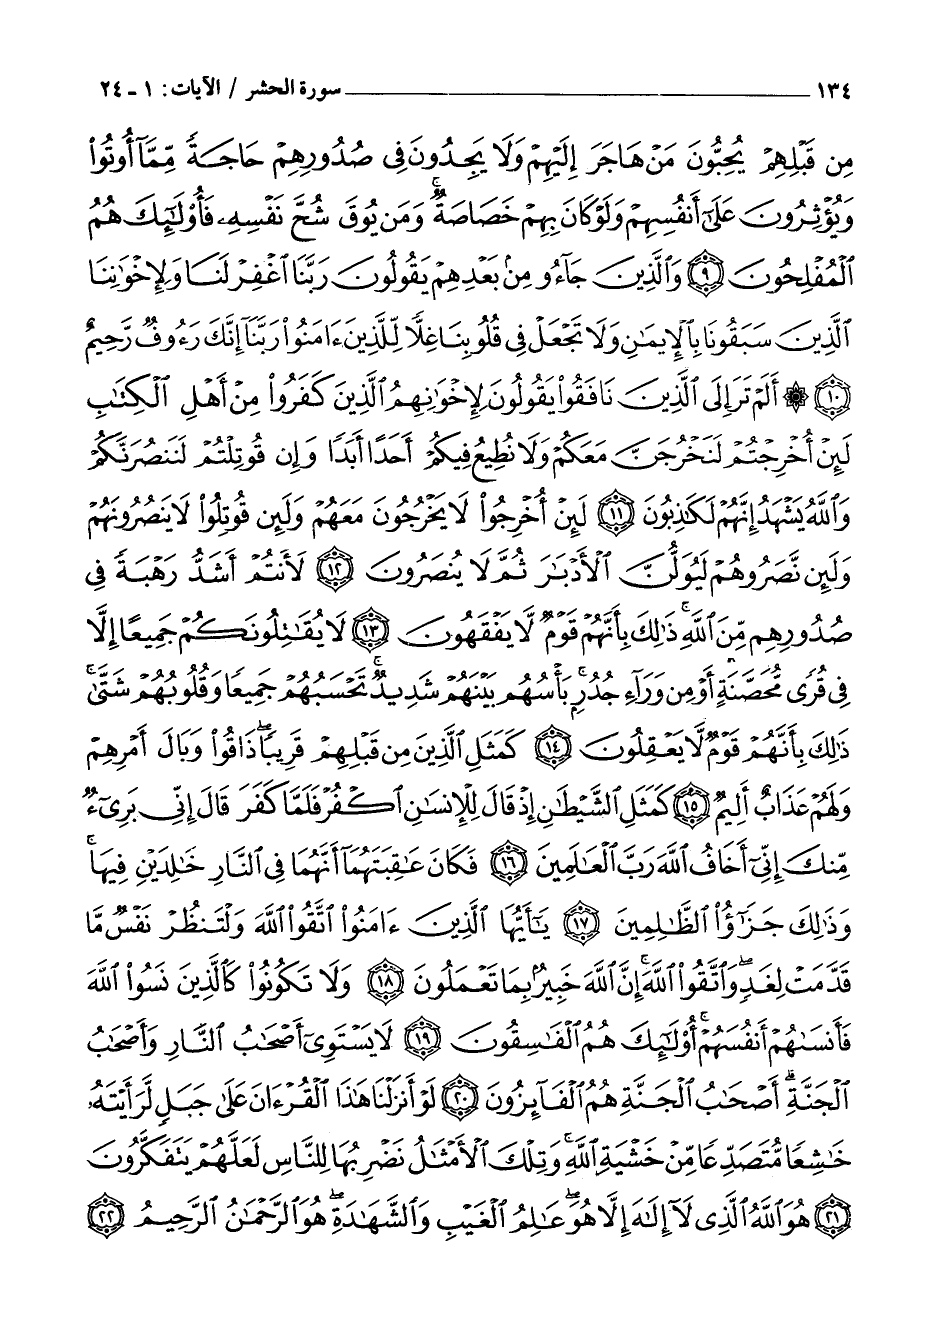 ١٣٤ ـــــــــــــــــــــــــــــــــــ سورة الحشر / الآيات: ١ - ٢٤
مِن قَبْلِهِمْ يُحِبُّونَ مَنْ هَاجَرَ إِلَيْهِمْ وَلَا يَجِدُونَ فِى صُدُورِهِمْ حَاجَةً مِّمَّآ أُوتُوا۟
وَيُؤْثِرُونَ عَلَىٰٓ أَنفُسِهِمْ وَلَوْ كَانَ بِهِمْ خَصَاصَةٌ ۚ وَمَن يُوقَ شُحَّ نَفْسِهِۦ فَأُو۟لَٰٓئِكَ هُمُ
ٱلْمُفْلِحُونَ ﴿٩﴾ وَٱلَّذِينَ جَآءُو مِنۢ بَعْدِهِمْ يَقُولُونَ رَبَّنَا ٱغْفِرْ لَنَا وَلِإِخْوَٰنِنَا
ٱلَّذِينَ سَبَقُونَا بِٱلْإِيمَٰنِ وَلَا تَجْعَلْ فِى قُلُوبِنَا غِلًّا لِّلَّذِينَ ءَامَنُوا۟ رَبَّنَآ إِنَّكَ رَءُوفٌ رَّحِيمٌ
﴿١٠﴾ ۞ أَلَمْ تَرَ إِلَى ٱلَّذِينَ نَافَقُوا۟ يَقُولُونَ لِإِخْوَٰنِهِمُ ٱلَّذِينَ كَفَرُوا۟ مِنْ أَهْلِ ٱلْكِتَٰبِ
لَئِنْ أُخْرِجْتُمْ لَنَخْرُجَنَّ مَعَكُمْ وَلَا نُطِيعُ فِيكُمْ أَحَدًا أَبَدًا وَإِن قُوتِلْتُمْ لَنَنصُرَنَّكُمْ
وَٱللَّهُ يَشْهَدُ إِنَّهُمْ لَكَٰذِبُونَ ﴿١١﴾ لَئِنْ أُخْرِجُوا۟ لَا يَخْرُجُونَ مَعَهُمْ وَلَئِن قُوتِلُوا۟ لَا يَنصُرُونَهُمْ
وَلَئِن نَّصَرُوهُمْ لَيُوَلُّنَّ ٱلْأَدْبَٰرَ ثُمَّ لَا يُنصَرُونَ ﴿١٢﴾ لَأَنتُمْ أَشَدُّ رَهْبَةً فِى
صُدُورِهِم مِّنَ ٱللَّهِ ۚ ذَٰلِكَ بِأَنَّهُمْ قَوْمٌ لَّا يَفْقَهُونَ ﴿١٣﴾ لَا يُقَٰتِلُونَكُمْ جَمِيعًا إِلَّا
فِى قُرًى مُّحَصَّنَةٍ أَوْ مِن وَرَآءِ جُدُرٍۭ ۚ بَأْسُهُم بَيْنَهُمْ شَدِيدٌ ۚ تَحْسَبُهُمْ جَمِيعًا وَقُلُوبُهُمْ شَتَّىٰ ۚ
ذَٰلِكَ بِأَنَّهُمْ قَوْمٌ لَّا يَعْقِلُونَ ﴿١٤﴾ كَمَثَلِ ٱلَّذِينَ مِن قَبْلِهِمْ قَرِيبًا ۖ ذَاقُوا۟ وَبَالَ أَمْرِهِمْ
وَلَهُمْ عَذَابٌ أَلِيمٌ ﴿١٥﴾ كَمَثَلِ ٱلشَّيْطَٰنِ إِذْ قَالَ لِلْإِنسَٰنِ ٱكْفُرْ فَلَمَّا كَفَرَ قَالَ إِنِّى بَرِىٓءٌ
مِّنكَ إِنِّىٓ أَخَافُ ٱللَّهَ رَبَّ ٱلْعَٰلَمِينَ ﴿١٦﴾ فَكَانَ عَٰقِبَتَهُمَآ أَنَّهُمَا فِى ٱلنَّارِ خَٰلِدَيْنِ فِيهَا ۚ
وَذَٰلِكَ جَزَٰٓؤُا۟ ٱلظَّٰلِمِينَ ﴿١٧﴾ يَٰٓأَيُّهَا ٱلَّذِينَ ءَامَنُوا۟ ٱتَّقُوا۟ ٱللَّهَ وَلْتَنظُرْ نَفْسٌ مَّا
قَدَّمَتْ لِغَدٍ ۖ وَٱتَّقُوا۟ ٱللَّهَ ۚ إِنَّ ٱللَّهَ خَبِيرٌۢ بِمَا تَعْمَلُونَ ﴿١٨﴾ وَلَا تَكُونُوا۟ كَٱلَّذِينَ نَسُوا۟ ٱللَّهَ
فَأَنسَىٰهُمْ أَنفُسَهُمْ ۚ أُو۟لَٰٓئِكَ هُمُ ٱلْفَٰسِقُونَ ﴿١٩﴾ لَا يَسْتَوِىٓ أَصْحَٰبُ ٱلنَّارِ وَأَصْحَٰبُ
ٱلْجَنَّةِ ۚ أَصْحَٰبُ ٱلْجَنَّةِ هُمُ ٱلْفَآئِزُونَ ﴿٢٠﴾ لَوْ أَنزَلْنَا هَٰذَا ٱلْقُرْءَانَ عَلَىٰ جَبَلٍ لَّرَأَيْتَهُۥ
خَٰشِعًا مُّتَصَدِّعًا مِّنْ خَشْيَةِ ٱللَّهِ ۚ وَتِلْكَ ٱلْأَمْثَٰلُ نَضْرِبُهَا لِلنَّاسِ لَعَلَّهُمْ يَتَفَكَّرُونَ
﴿٢١﴾ هُوَ ٱللَّهُ ٱلَّذِى لَآ إِلَٰهَ إِلَّا هُوَ ۖ عَٰلِمُ ٱلْغَيْبِ وَٱلشَّهَٰدَةِ ۖ هُوَ ٱلرَّحْمَٰنُ ٱلرَّحِيمُ ﴿٢٢﴾